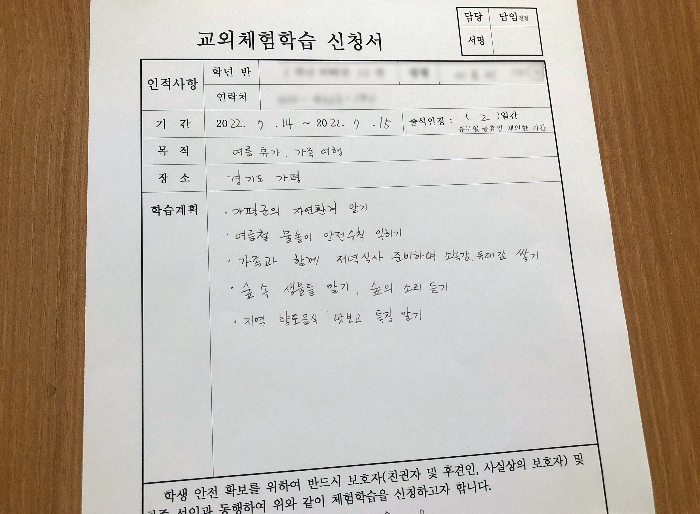 교외체험학습 신청서
담당 담임
서명
인적사항
학년 반
연락처
기 간 2022. 7 .14 ~ 2022. 7 .15 출석인정 : ( 2 )일간
목 적 여름 휴가, 가족 여행
장 소 경기도 가평
학습계획
· 가평군의 자연환경 알기
· 여름철 물놀이 안전수칙 익히기
· 가족과 함께 저녁식사 준비하며 소속감, 유대감 쌓기
· 숲 속 생물들 알기, 숲의 소리 듣기
· 지역 향토음식 맛보고 특징 알기
학생 안전 확보를 위하여 반드시 보호자(친권자 및 후견인, 사실상의 보호자) 및
동행하여 위와 같이 체험학습을 신청하고자 합니다.